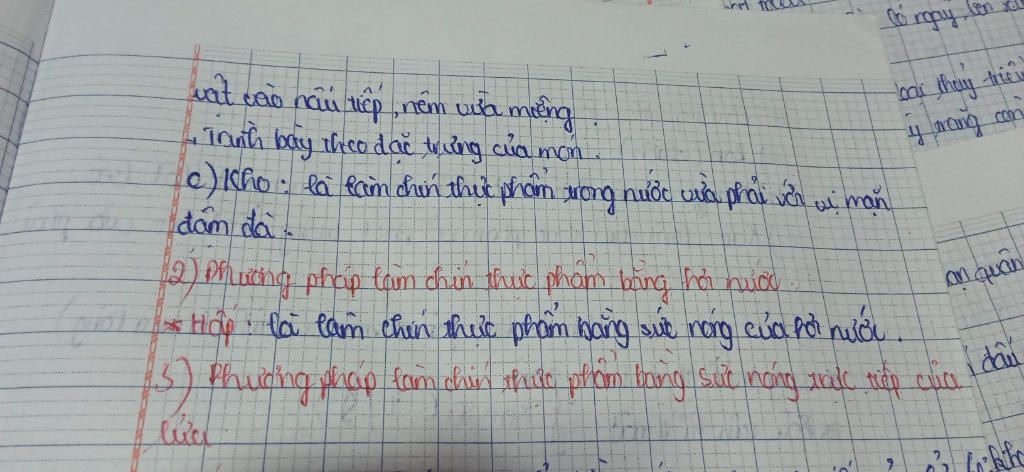 vật vào nấu tiếp, nêm vừa miệng.
- Trình bày theo đặc trưng của món.
c) Kho: là làm chín thực phẩm trong nước vừa phải với vị mặn
đậm đà.
2) Phương pháp làm chín thực phẩm bằng hơi nước.
* Hấp: là làm chín thực phẩm bằng sức nóng của hơi nước.
3) Phương pháp làm chín thực phẩm bằng sức nóng trực tiếp của
lửa
có ngay, lên
loại thủy triều
ý trăng
quân
dầu